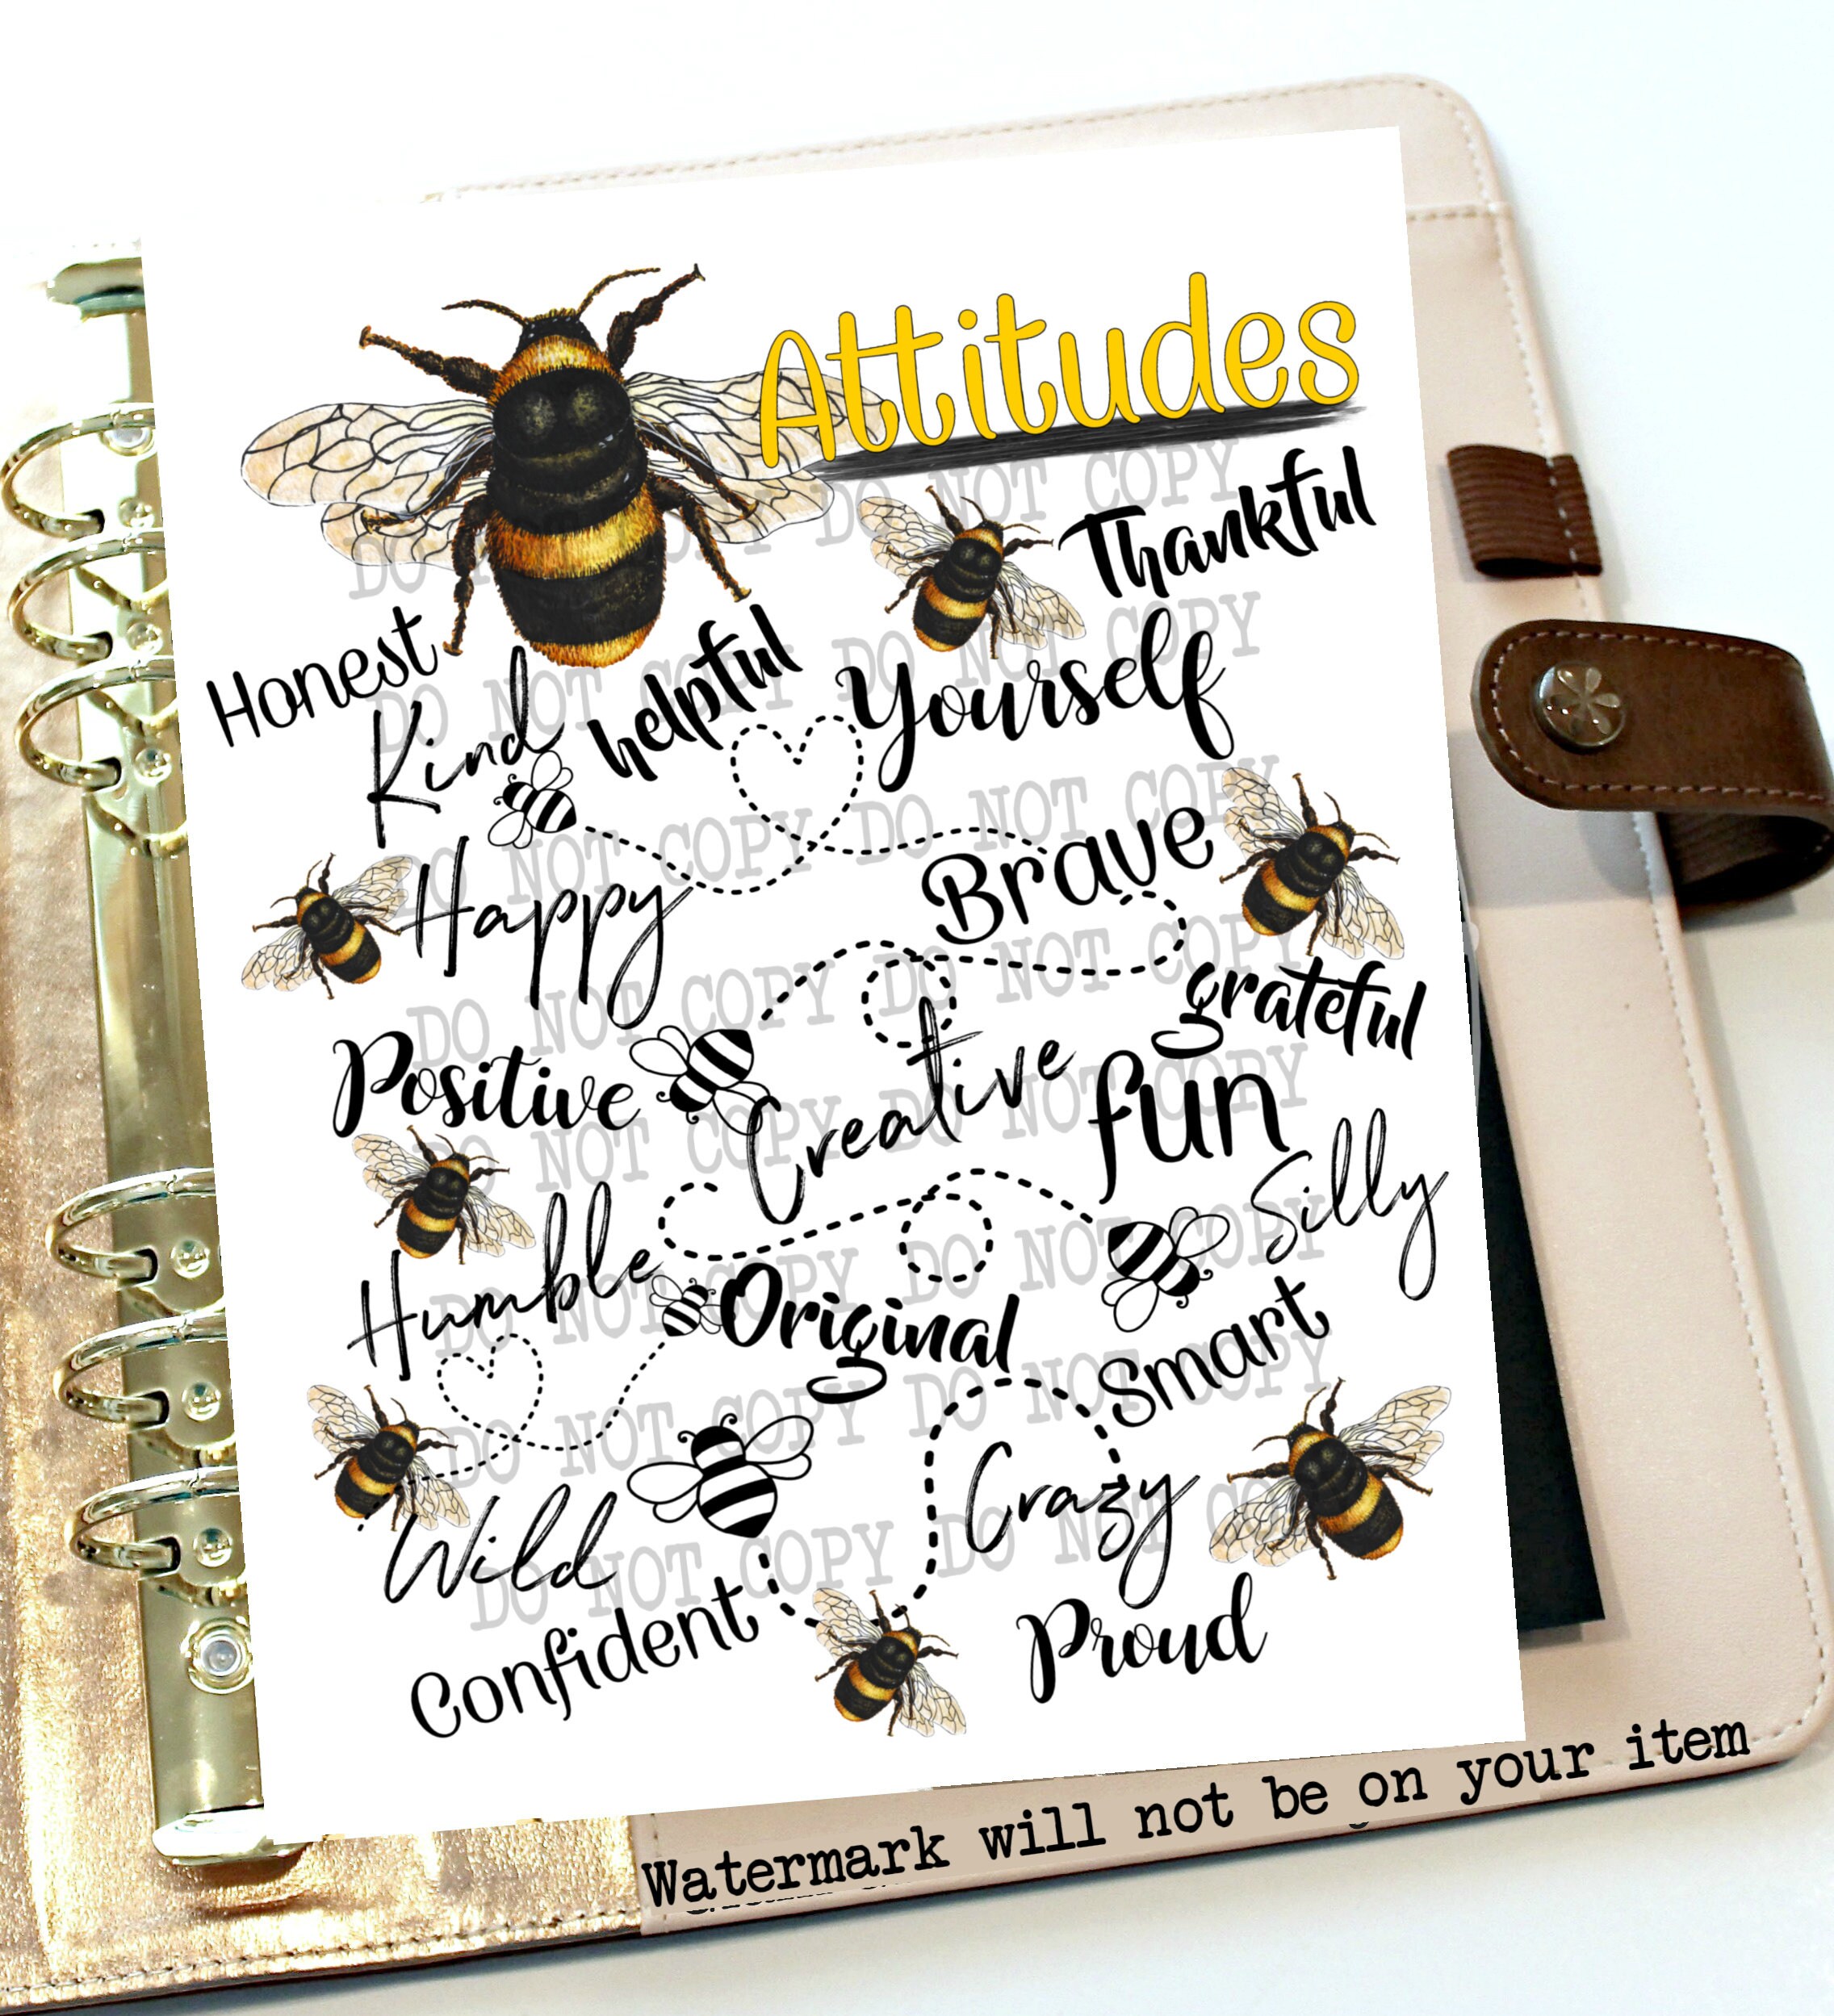 Attitudes
Thankful
Honest
Kind
helpful
Yourself
Happy
Brave
grateful
Positive
Creative
fun
Silly
Humble
Original
Smart
Wild
Crazy
Confident
Proud
DO NOT COPY DO NOT COPY
DO NOT COPY DO NOT COPY
DO NOT COPY DO NOT COPY
DO NOT COPY DO NOT COPY
DO NOT COPY DO NOT COPY
DO NOT COPY DO NOT COPY
DO NOT COPY DO NOT COPY
DO NOT COPY DO NOT COPY
Watermark will not be on your item